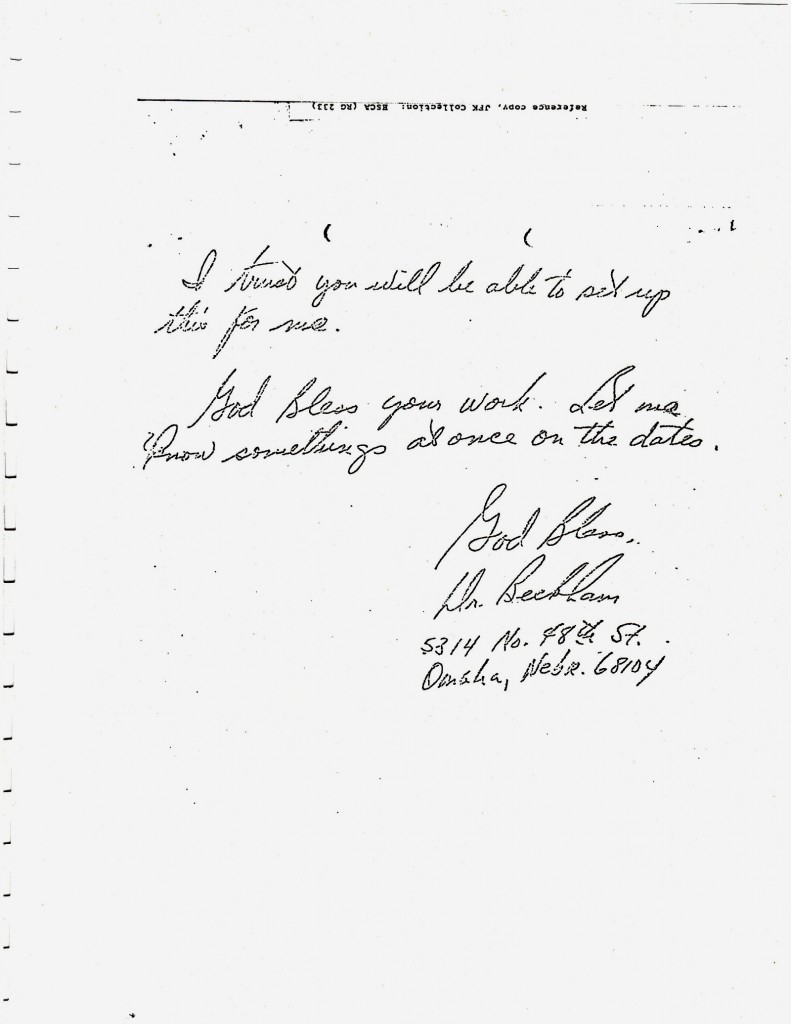 Reference copy, JFK Collection: HSCA (RG 233)
I trust you will be able to set up
this for me.
God Bless your work. Let me
Know somethings at once on the dates.
God Bless,
Dr. Beckham
5314 No. 48th St.
Omaha, Nebr. 68104